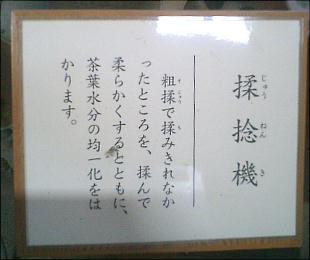 揉捻機
じゅうねんき
粗揉で揉みきれなか
ったところを、揉んで
柔らかくするとともに、
茶葉水分の均一化をは
かります。